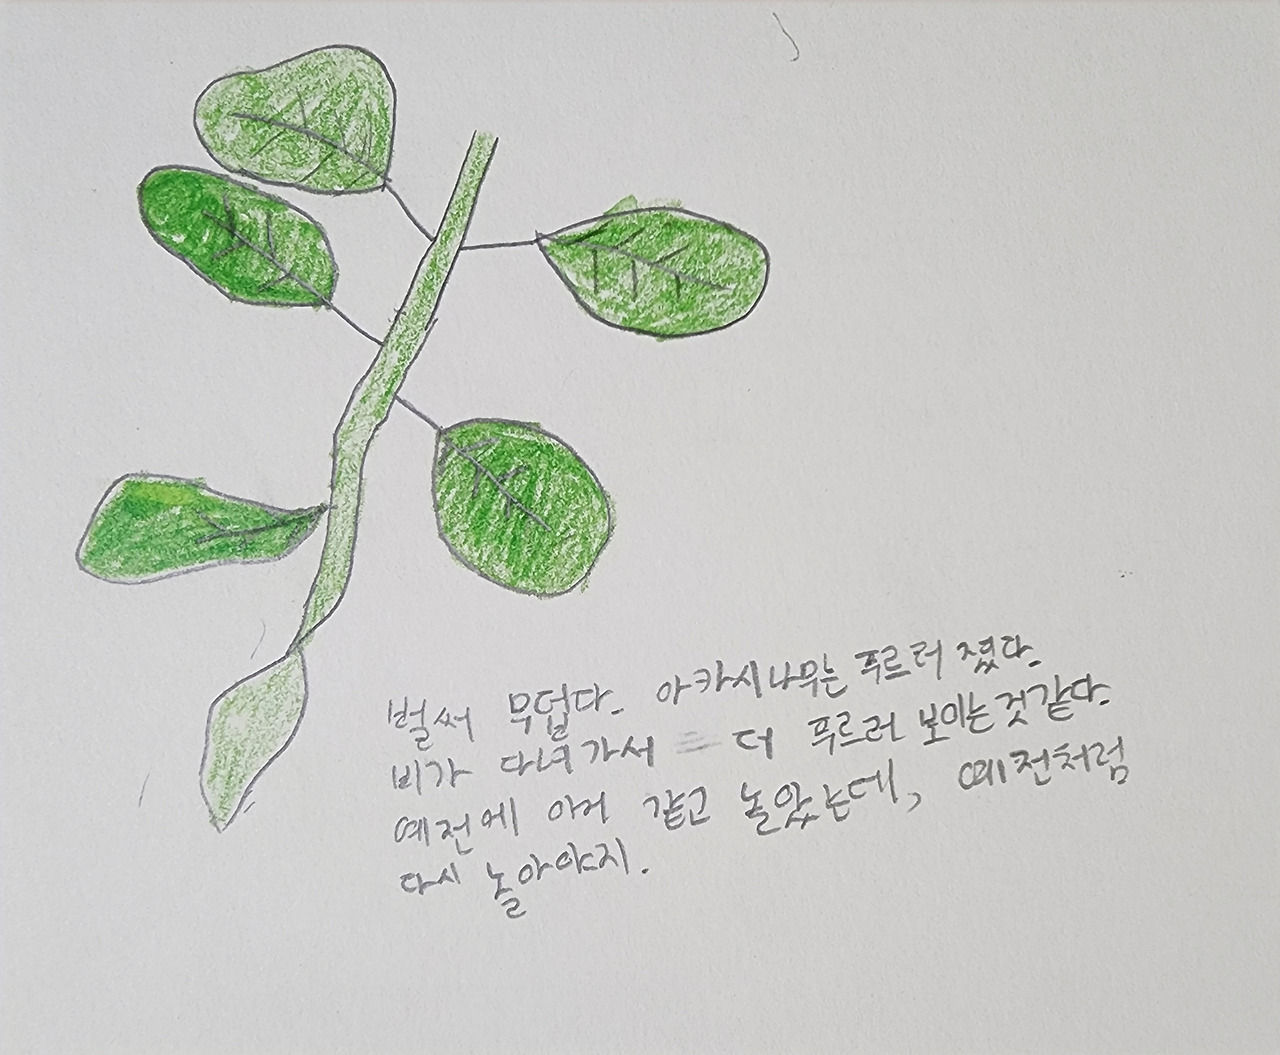 벌써 무덥다. 아카시나무는 푸르러 졌다.
비가 다녀가서 더 푸르러 보이는것같다.
예전에 갖고 놀았는데, 예전처럼
다시 놀아야지.